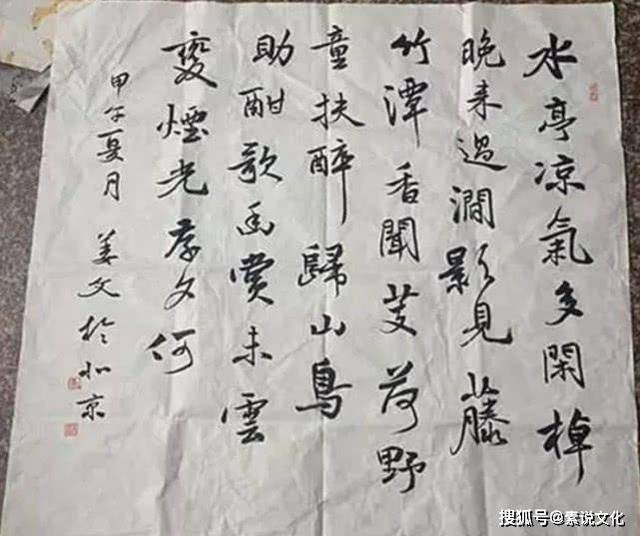 水亭凉氣多閑棹
晚来過澗影見藤
竹潭香聞芰荷野
童扶醉歸山鳥
助酣歌幽賞未雲
煙光夕何
甲午夏月 姜文於北京
搜狐号@素说文化